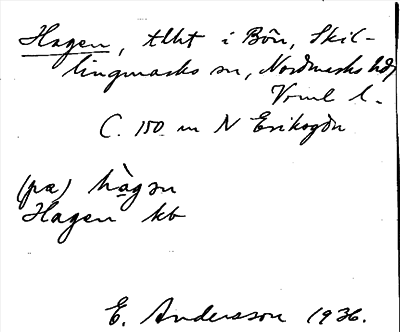 Hagen, tlht i Bön, Skil-
lingmarks sn, Nordmarks hd,
Vrml l.
C. 150 m N Eriksgdn
(pæ) hàgən
Hagen kb
E. Andersson 1936.